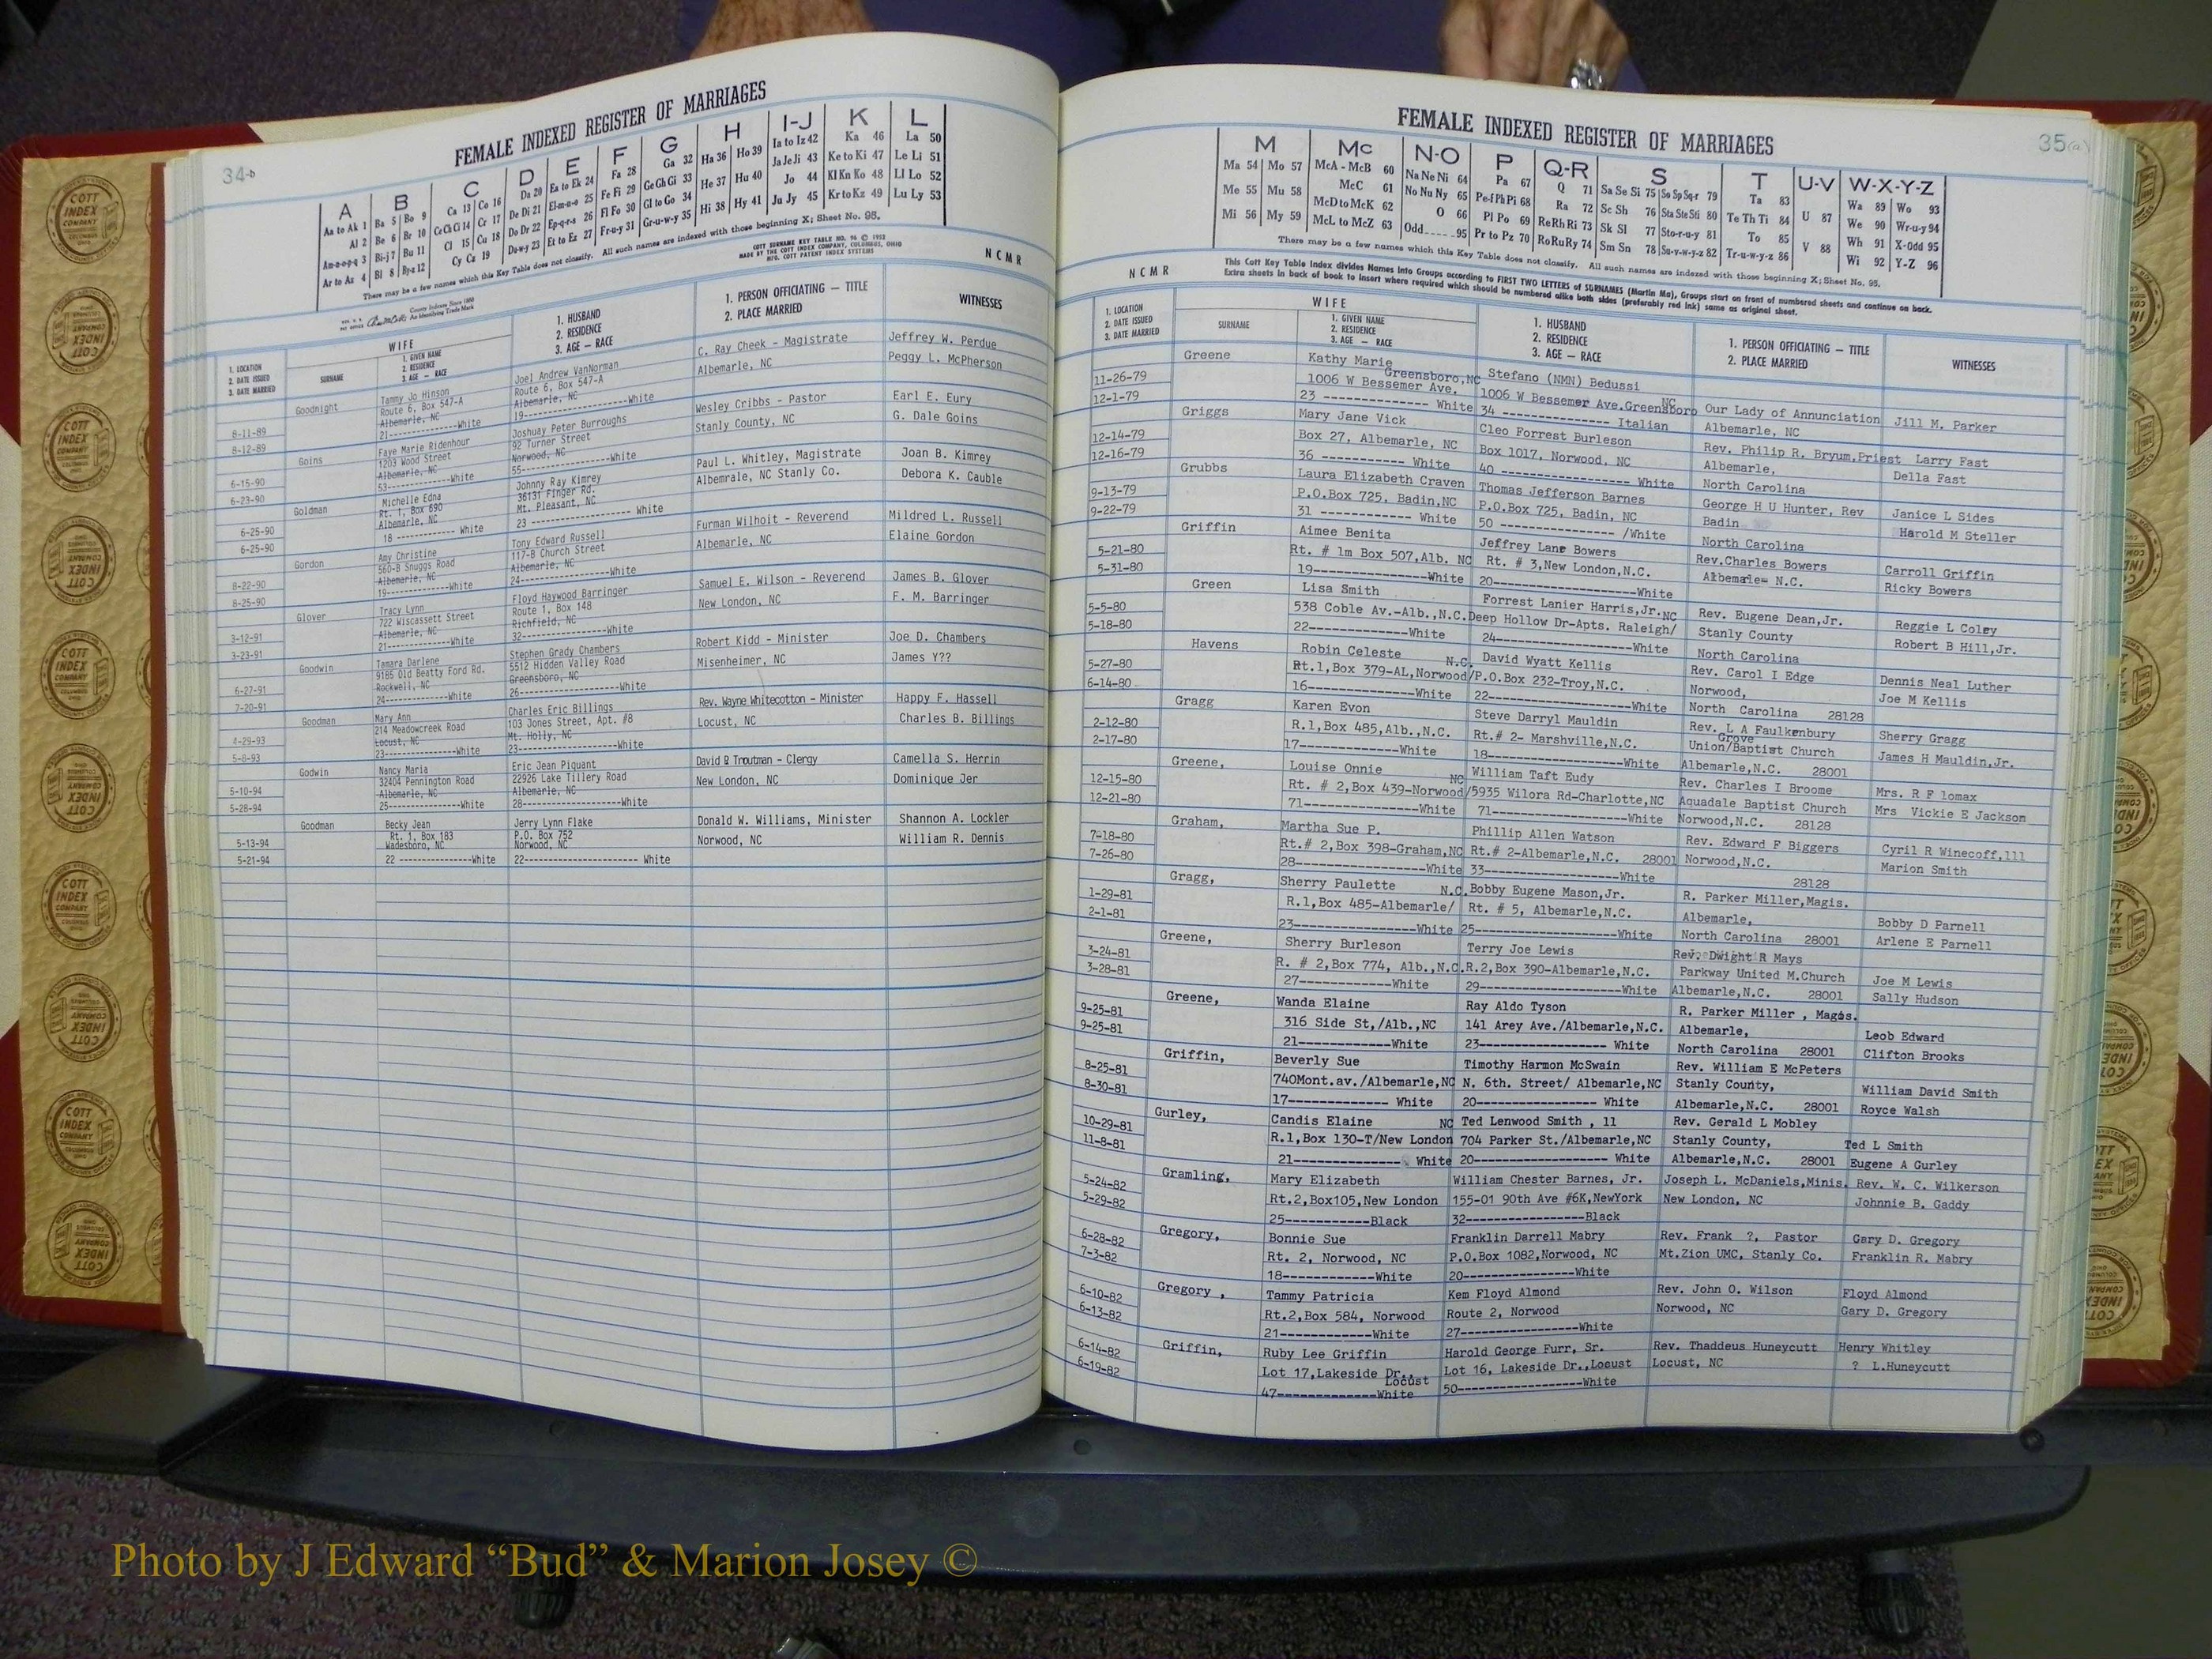 34-b
FEMALE INDEXED REGISTER OF MARRIAGES
A B C D E F G H I-J K L
Aa to Ak 1 Ba 5 Bo 9 Ca 13 Co 16 Da 20 Ea to Ek 24 Fa 28 Ga 32 Ha 36 Ho 39 Ia to Iz 42 Ka 46 La 50
Al 2 Be 6 Br 10 Ce Ch Ci 14 Cr 17 De Di 21 El-m-n-o 25 Fe Fi 29 Ge Gh Gi 33 He 37 Hu 40 Ja Je Ji 43 Ke to Ki 47 Le Li 51
Am-n-o-p-q 3 Bi-j 7 Bu 11 Cl 15 Cu 18 Do Dr 22 Ep-q-r-s 26 Fl Fo 30 Gl to Go 34 Hi 38 Hy 41 Jo 44 Kl Kn Ko 48 Ll Lo 52
Ar to Az 4 Bl 8 By-z 12 Cy Cz 19 Du-w-y 23 Et to Ez 27 Fr-u-y 31 Gr-u-w-y 35 Ju Jy 45 Kr to Kz 49 Lu Ly 53
There may be a few names which this Key Table does not classify. All such names are indexed with those beginning X; Sheet No. 95.
COTT SURNAME KEY TABLE NO. 96 © 1952
MADE BY THE COTT INDEX COMPANY, COLUMBUS, OHIO
MFG. COTT PATENT INDEX SYSTEMS
N C M R
County Indexes Since 1888
An Identifying Trade Mark
1. LOCATION
2. DATE ISSUED
3. DATE MARRIED
WIFE
SURNAME
1. GIVEN NAME
2. RESIDENCE
3. AGE — RACE
1. HUSBAND
2. RESIDENCE
3. AGE — RACE
1. PERSON OFFICIATING — TITLE
2. PLACE MARRIED
WITNESSES
Goodnight Tammy Jo Hinson Joel Andrew VanNorman C. Ray Cheek - Magistrate Jeffrey W. Perdue
Route 6, Box 547-A Route 6, Box 547-A Albemarle, NC Peggy L. McPherson
8-11-89 Albemarle, NC Albemarle, NC
8-12-89 21------------White 19--------------------White
Goins Faye Marie Ridenhour Joshuay Peter Burroughs Wesley Cribbs - Pastor Earl E. Eury
1203 Wood Street 92 Turner Street Stanly County, NC G. Dale Goins
6-15-90 Albemarle, NC Norwood, NC
6-23-90 53--------------White 55-----------------White
Goldman Michelle Edna Johnny Ray Kimrey Paul L. Whitley, Magistrate Joan B. Kimrey
Rt. 1, Box 690 36131 Finger Rd. Albemrale, NC Stanly Co. Debora K. Cauble
6-25-90 Albemarle, NC Mt. Pleasant, NC
6-25-90 18 ---------- White 23 ----------------- White
Gordon Amy Christine Tony Edward Russell Furman Wilhoit - Reverend Mildred L. Russell
560-B Snuggs Road 117-B Church Street Albemarle, NC Elaine Gordon
8-22-90 Albemarle, NC Albemarle, NC
8-25-90 19--------------White 24---------------White
Glover Tracy Lynn Floyd Haywood Barringer Samuel E. Wilson - Reverend James B. Glover
722 Wiscassett Street Route 1, Box 148 New London, NC F. M. Barringer
3-12-91 Albemarle, NC Richfield, NC
3-23-91 21--------------White 32---------------White
Goodwin Tamara Darlene Stephen Grady Chambers Robert Kidd - Minister Joe D. Chambers
9185 Old Beatty Ford Rd. 5512 Hidden Valley Road Misenheimer, NC James Y??
6-27-91 Rockwell, NC Greensboro, NC
7-20-91 24--------------White 26------------------White
Goodman Mary Ann Charles Eric Billings Rev. Wayne Whitecotton - Minister Happy F. Hassell
214 Meadowcreek Road 103 Jones Street, Apt. #8 Locust, NC Charles B. Billings
4-29-93 Locust, NC Mt. Holly, NC
5-8-93 23----------------White 23------------------White
Godwin Nancy Maria Eric Jean Piquant David R Troutman - Clergy Camella S. Herrin
32404 Pennington Road 22926 Lake Tillery Road New London, NC Dominique Jer
5-10-94 Albemarle, NC Albemarle, NC
5-28-94 25----------------White 28------------------White
Goodman Becky Jean Jerry Lynn Flake Donald W. Williams, Minister Shannon A. Lockler
5-13-94 Rt. 1, Box 183 P.O. Box 752 Norwood, NC William R. Dennis
Wadesboro, NC Norwood, NC
5-21-94 22 --------------White 22--------------------- White
35(a)
FEMALE INDEXED REGISTER OF MARRIAGES
M Mc N-O P Q-R S T U-V W-X-Y-Z
Ma 54 Mo 57 McA - McB 60 Na Ne Ni 64 Pa 67 Q 71 Sa Se Si 75 So Sp Sq-r 79 Ta 83 U 87 Wa 89 Wo 93
Me 55 Mu 58 McC 61 No Nu Ny 65 Pe-f Ph Pi 68 Ra 72 Sc Sh 76 Sta Ste Sti 80 Te Th Ti 84 V 88 We 90 Wr-u-y 94
Mi 56 My 59 McD to McK 62 O 66 Pl Po 69 Re Rh Ri 73 Sk Sl 77 Sto-r-u-y 81 To 85 Wh 91 X-Odd 95
McL to McZ 63 Odd 95 Pr to Pz 70 Ro Ru Ry 74 Sm Sn 78 Su-v-w-y-z 82 Tr-u-w-y-z 86 Wi 92 Y-Z 96
There may be a few names which this Key Table does not classify. All such names are indexed with those beginning X; Sheet No. 95.
This Cott Key Table Index divides Names into Groups according to FIRST TWO LETTERS of SURNAMES (Martin Ma), Groups start on front of numbered sheets and continue on back.
Extra sheets in back of book to insert where required which should be numbered alike both sides (preferably red ink) same as original sheet.
N C M R
1. LOCATION
2. DATE ISSUED
3. DATE MARRIED
WIFE
SURNAME
1. GIVEN NAME
2. RESIDENCE
3. AGE — RACE
1. HUSBAND
2. RESIDENCE
3. AGE — RACE
1. PERSON OFFICIATING — TITLE
2. PLACE MARRIED
WITNESSES
Greene Kathy Marie Stefano (NMN) Bedussi
11-26-79 Greensboro,NC NC
12-1-79 1006 W Bessemer Ave. 1006 W Bessemer Ave.Greensboro Our Lady of Annunciation Jill M. Parker
23 -------------- White 34 -------------- Italian Albemarle, NC
Griggs Mary Jane Vick Cleo Forrest Burleson Rev. Philip R. Bryum,Priest Larry Fast
12-14-79 Box 27, Albemarle, NC Box 1017, Norwood, NC Albemarle, Della Fast
12-16-79 36 ----------- White 40 ------------------ White North Carolina
Grubbs Laura Elizabeth Craven Thomas Jefferson Barnes George H U Hunter, Rev Janice L Sides
9-13-79 P.O.Box 725, Badin,NC P.O.Box 725, Badin, NC Badin Harold M Steller
9-22-79 31 ------------ White 50 ------------ /White North Carolina
Griffin Aimee Benita Jeffrey Lane Bowers Rev.Charles Bowers Carroll Griffin
5-21-80 Rt. # 1m Box 507,Alb. NC Rt. # 3,New London,N.C. Albemarle- N.C. Ricky Bowers
5-31-80 19---------------White 20---------------White
Green Lisa Smith Forrest Lanier Harris,Jr.NC Rev. Eugene Dean,Jr. Reggie L Coley
5-5-80 538 Coble Av.-Alb.,N.C. Deep Hollow Dr-Apts. Raleigh/ Stanly County Robert B Hill,Jr.
5-18-80 22--------------White 24---------------White North Carolina
Havens Robin Celeste N.C. David Wyatt Kellis Rev. Carol I Edge Dennis Neal Luther
5-27-80 Rt.1,Box 379-AL,Norwood/ P.O.Box 232-Troy,N.C. Norwood, Joe M Kellis
6-14-80 16---------------White 22---------------White North Carolina 28128
Gragg Karen Evon Steve Darryl Mauldin Rev. L A Faulkenbury Sherry Gragg
2-12-80 R.1,Box 485,Alb.,N.C. Rt.# 2- Marshville,N.C. Grove
Union/Baptist Church James H Mauldin,Jr.
2-17-80 17-------------White 18----------------White Albemarle,N.C. 28001
Greene, Louise Onnie NC William Taft Eudy Rev. Charles I Broome Mrs. R F lomax
12-15-80 Rt. # 2,Box 439-Norwood/ 5935 Wilora Rd-Charlotte,NC Aquadale Baptist Church Mrs Vickie E Jackson
12-21-80 71---------------White 71---------------White Norwood,N.C. 28128
Graham, Martha Sue P. Phillip Allen Watson Rev. Edward F Biggers Cyril R Winecoff,lll
7-18-80 Rt.# 2,Box 398-Graham,NC Rt.# 2-Albemarle,N.C. 28001 Norwood,N.C. Marion Smith
7-26-80 28----------------White 33-----------------White 28128
Gragg, Sherry Paulette N.C. Bobby Eugene Mason,Jr. R. Parker Miller,Magis. Bobby D Parnell
1-29-81 R.1,Box 485-Albemarle/ Rt. # 5, Albemarle,N.C. Albemarle, Arlene E Parnell
2-1-81 23---------------White 25-----------------White North Carolina 28001
Greene, Sherry Burleson Terry Joe Lewis Rev. Dwight R Mays
3-24-81 R. # 2,Box 774, Alb.,N.C. R.2,Box 390-Albemarle,N.C. Parkway United M.Church Joe M Lewis
3-28-81 27-------------White 29-----------------White Albemarle,N.C. 28001 Sally Hudson
Greene, Wanda Elaine Ray Aldo Tyson R. Parker Miller , Magis.
9-25-81 316 Side St,/Alb.,NC 141 Arey Ave./Albemarle,N.C. Albemarle, Leob Edward
9-25-81 21-------------White 23---------------- White North Carolina 28001 Clifton Brooks
Griffin, Beverly Sue Timothy Harmon McSwain Rev. William E McPeters
8-25-81 740Mont.av./Albemarle,NC N. 6th. Street/ Albemarle,NC Stanly County, William David Smith
8-30-81 17-------------- White 20----------------- White Albemarle,N.C. 28001 Royce Walsh
Gurley, Candis Elaine NC Ted Lenwood Smith , 11 Rev. Gerald L Mobley
10-29-81 R.1,Box 130-T/New London 704 Parker St./Albemarle,NC Stanly County, Ted L Smith
11-8-81 21--------------- White 20------------------- White Albemarle,N.C. 28001 Eugene A Gurley
Gramling, Mary Elizabeth William Chester Barnes, Jr. Joseph L. McDaniels,Minis. Rev. W. C. Wilkerson
5-24-82 Rt.2,Box105,New London 155-01 90th Ave #6K,NewYork New London, NC Johnnie B. Gaddy
5-29-82 25-----------Black 32-----------------Black
Gregory, Bonnie Sue Franklin Darrell Mabry Rev. Frank ?, Pastor Gary D. Gregory
6-28-82 Rt. 2, Norwood, NC P.O.Box 1082,Norwood, NC Mt.Zion UMC, Stanly Co. Franklin R. Mabry
7-3-82 18------------White 20----------------White
Gregory , Tammy Patricia Kem Floyd Almond Rev. John O. Wilson Floyd Almond
6-10-82 Rt.2,Box 584, Norwood Route 2, Norwood Norwood, NC Gary D. Gregory
6-13-82 21------------White 27-----------------White
Griffin, Ruby Lee Griffin Harold George Furr, Sr. Rev. Thaddeus Huneycutt Henry Whitley
6-14-82 Lot 17,Lakeside Dr., Lot 16, Lakeside Dr.,Locust Locust, NC ? L.Huneycutt
Locust
6-19-82 47-------------White 50------------------White
COTT INDEX COMPANY COLUMBUS OHIO
Photo by J Edward “Bud” & Marion Josey ©